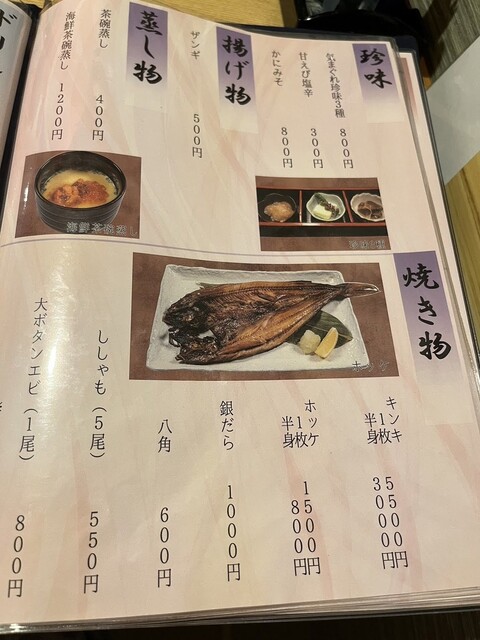 珍味
気まぐれ珍味3種 800円
甘えび塩辛 300円
かにみそ 800円
揚げ物
ザンギ 500円
蒸し物
茶碗蒸し 400円
海鮮茶碗蒸し 1200円
珍味3種
海鮮茶碗蒸し
焼き物
ホッケ
キンキ
1枚 5500円
半身 3000円
ホッケ
1枚 1500円
半身 800円
銀だら 1000円
八角 600円
ししゃも(5尾) 550円
大ボタンエビ(1尾) 800円